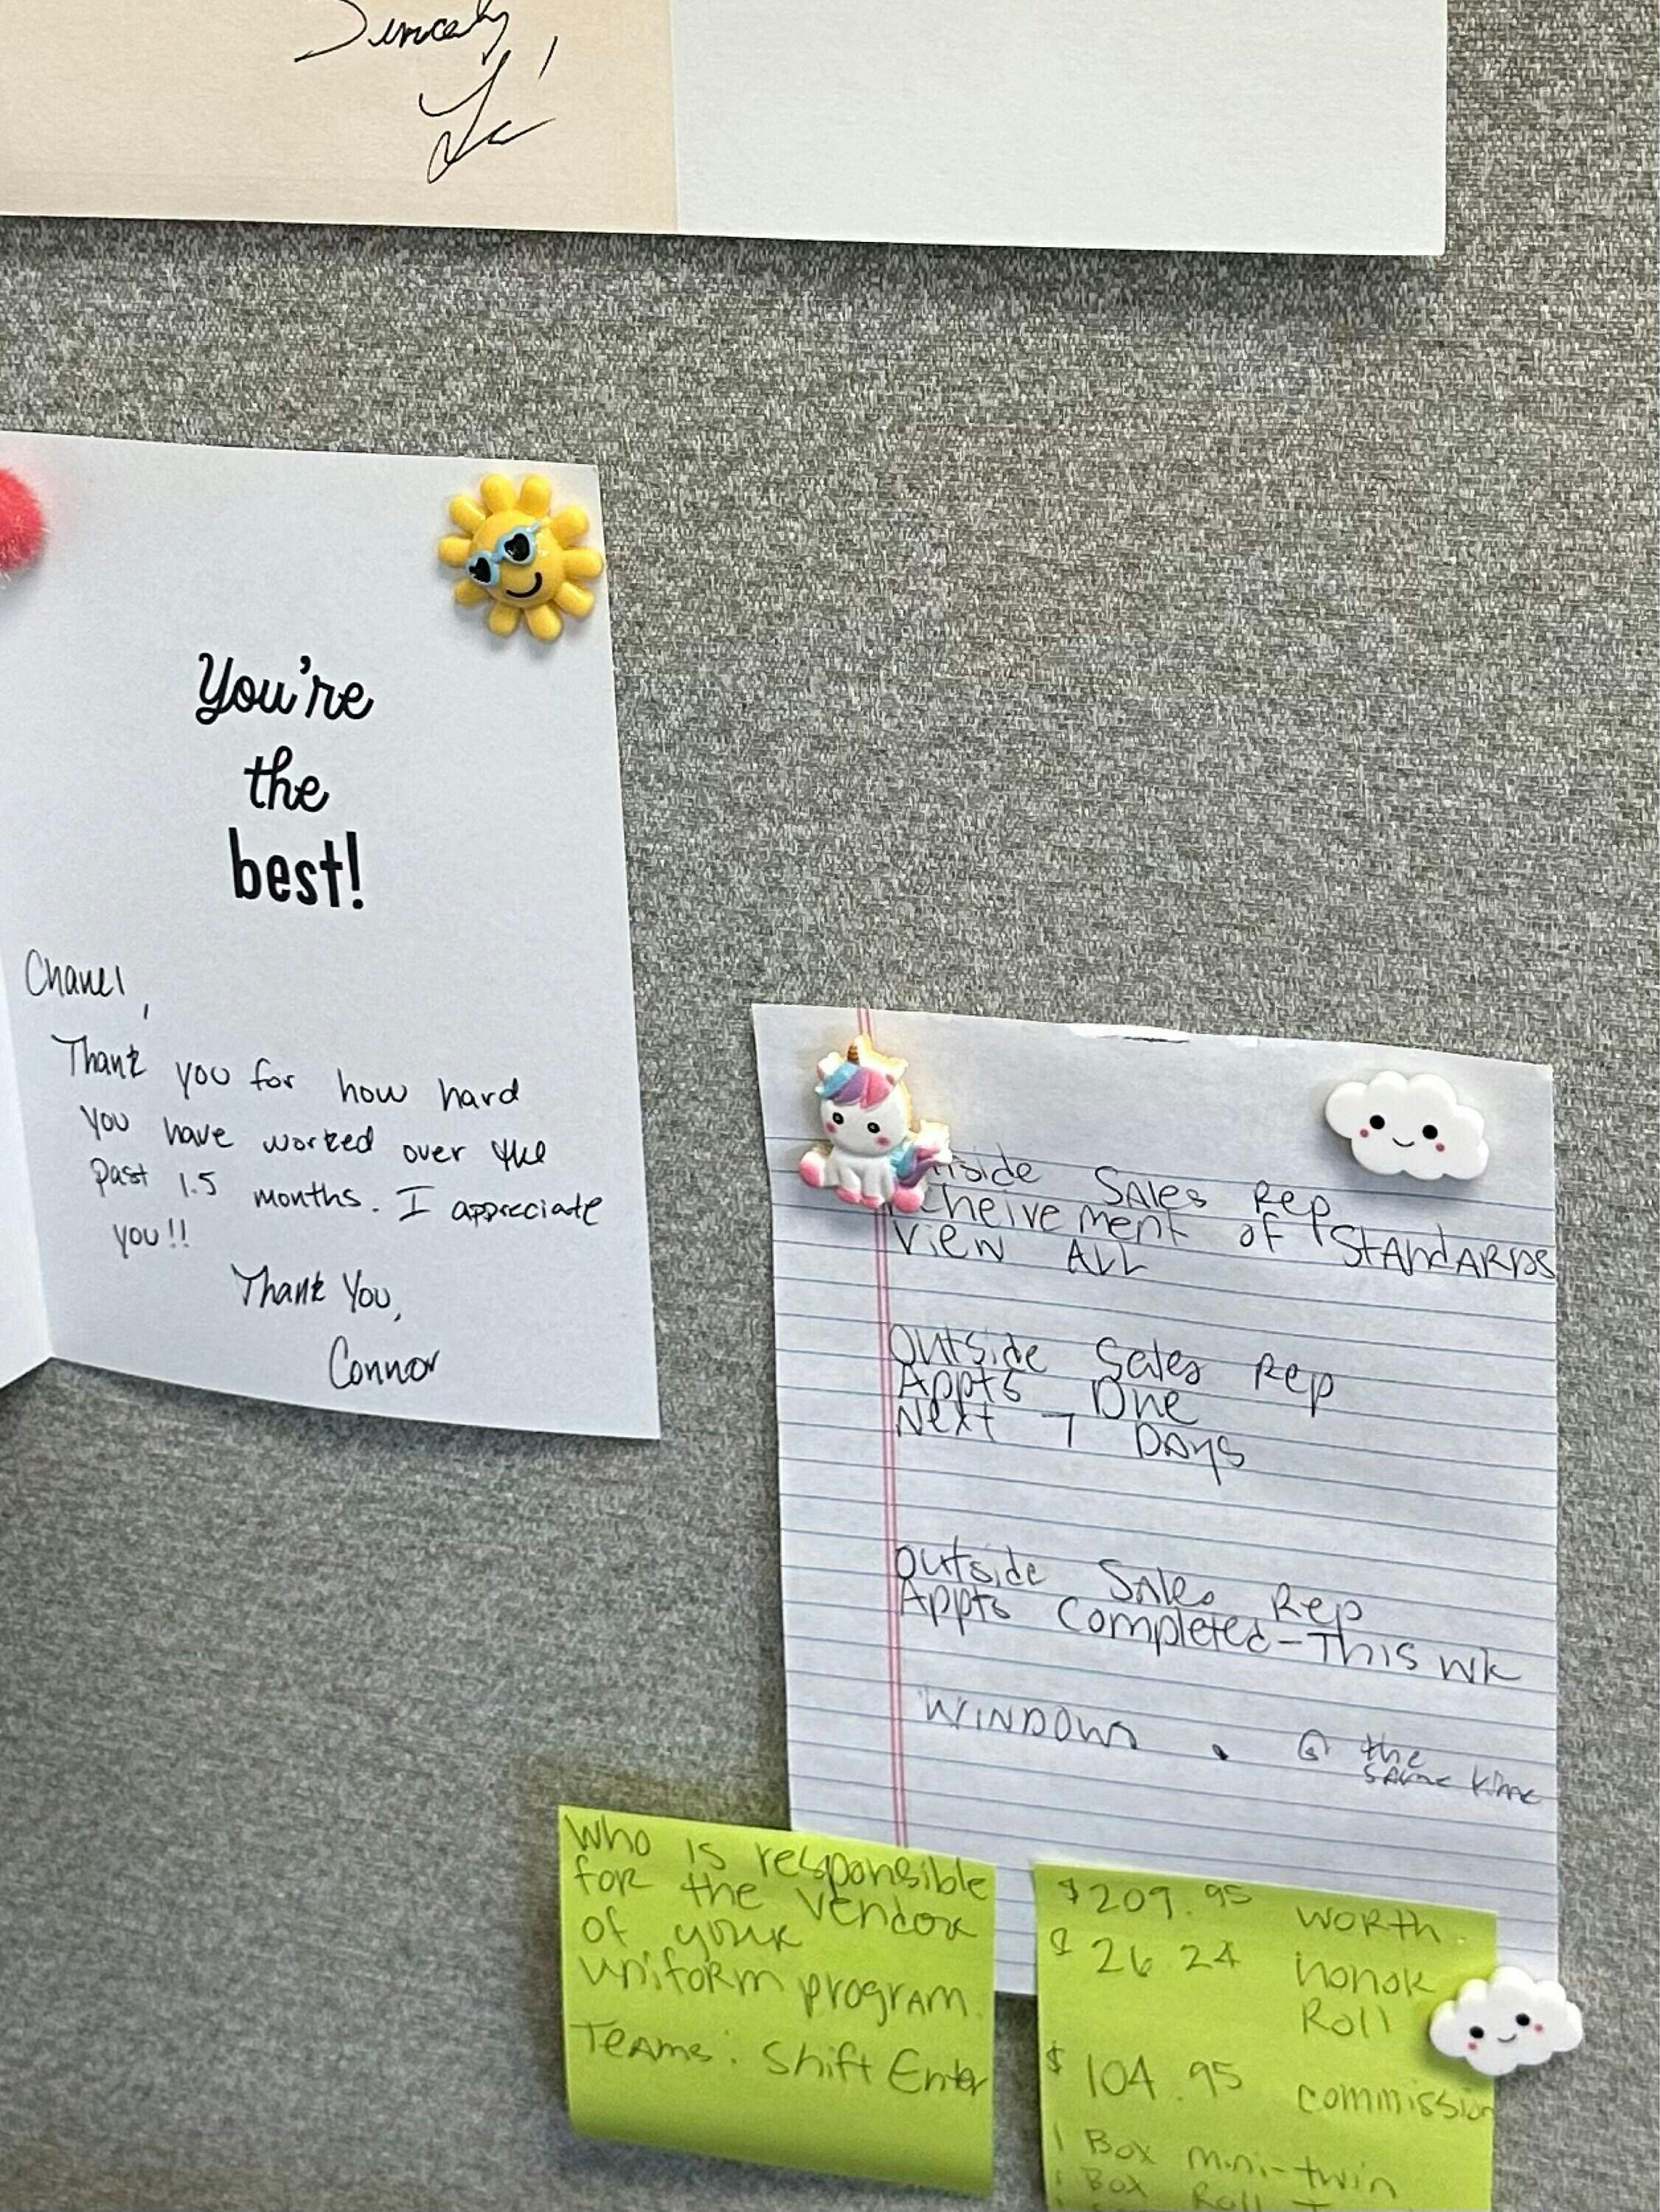 Sincerely
You're
the
best!
Chanel,
Thank you for how hard
you have worked over the
past 1.5 months. I appreciate
you!!
Thank You,
Connor
Sales Rep
cheivement of Standards
View All
Outside Sales Rep
Appts One
Next 7 Days
Outside Sales Rep
Appts Completed-This wk
WINDOWS . @ the
same time
Who is responsible
for the Vendor
of your
uniform program.
Teams: Shift Enter
$209.95 worth
$26.24 honor
Roll
$104.95 commission
1 Box mini-twin
1 Box Roll T